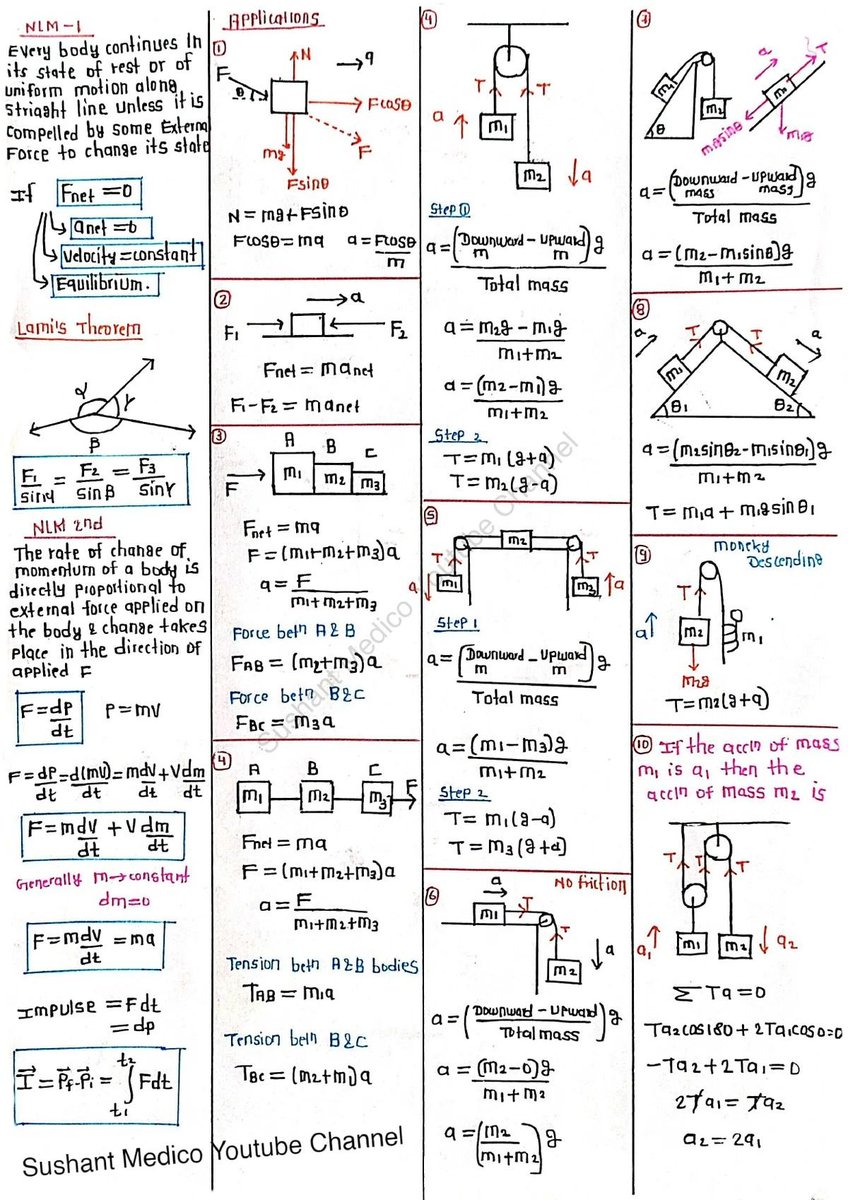 NLM-1
Every body continues in
its state of rest or of
uniform motion along
straight line unless it is
compelled by some External
Force to change its state
If Fnet = 0
anet = 0
Velocity = constant
Equilibrium.
Lami's Theorem
α
γ
β
F1/sinα = F2/sinβ = F3/sinγ
NLM 2nd
The rate of change of
momentum of a body is
directly proportional to
external force applied on
the body & change takes
place in the direction of
applied F
F = dp/dt P = mV
F = dp/dt = d(mV)/dt = mdV/dt + Vdm/dt
F = mdV/dt + Vdm/dt
Generally m → constant
dm = 0
F = mdV/dt = ma
Impulse = Fdt
= dp
I = Pf - Pi = ∫ Fdt
t2
t1
Applications
①
N
a
F
θ
Fcosθ
F
mg
Fsinθ
N = mg + Fsinθ
Fcosθ = ma a = Fcosθ/m
②
a
F1 F2
Fnet = manet
F1 - F2 = manet
③
A B C
F m1 m2 m3
Fnet = ma
F = (m1+m2+m3)a
a = F/m1+m2+m3
Force betn A & B
FAB = (m2+m3)a
Force betn B & C
FBC = m3a
④
A B C
m1 m2 m3 F
Fnet = ma
F = (m1+m2+m3)a
a = F/m1+m2+m3
Tension betn A & B bodies
TAB = m1a
Tension betn B & C
TBC = (m2+m1)a
④
T T
a m1
m2 a
Step ①
a = (Downward m - Upward m)g/Total mass
a = m2g - m1g/m1+m2
a = (m2-m1)g/m1+m2
Step 2
T = m1(g+a)
T = m2(g-a)
⑤
m2
T T
a m1 m3 a
Step 1
a = (Downward m - Upward m)g/Total mass
a = (m1-m3)g/m1+m2
Step 2
T = m1(g-a)
T = m3(g+a)
⑥
No friction
a
m1 T
T
m2 a
a = (Downward - Upward/Total mass)g
a = (m2-0)g/m1+m2
a = (m2/m1+m2)g
⑦
a T
m1 m2 m1
θ
mgsinθ m1g
a = (Downward mass - Upward mass)g/Total mass
a = (m2-m1sinθ)g/m1+m2
⑧
a T T a
m1 m2
θ1 θ2
a = (m2sinθ2-m1sinθ1)g/m1+m2
T = m1a + m1gsinθ1
⑨
moneky
Descending
T
a m2 m1
m2g
T = m2(g+a)
⑩ If the accln of mass
m1 is a1 then the
accln of mass m2 is
T T T
a1 m1 m2 a2
ΣTa = 0
Ta2cos180 + 2Ta1cos0 = 0
-Ta2 + 2Ta1 = 0
2Ta1 = Ta2
a2 = 2a1
Sushant Medico Youtube Channel
Sushant Medico Youtube Channel